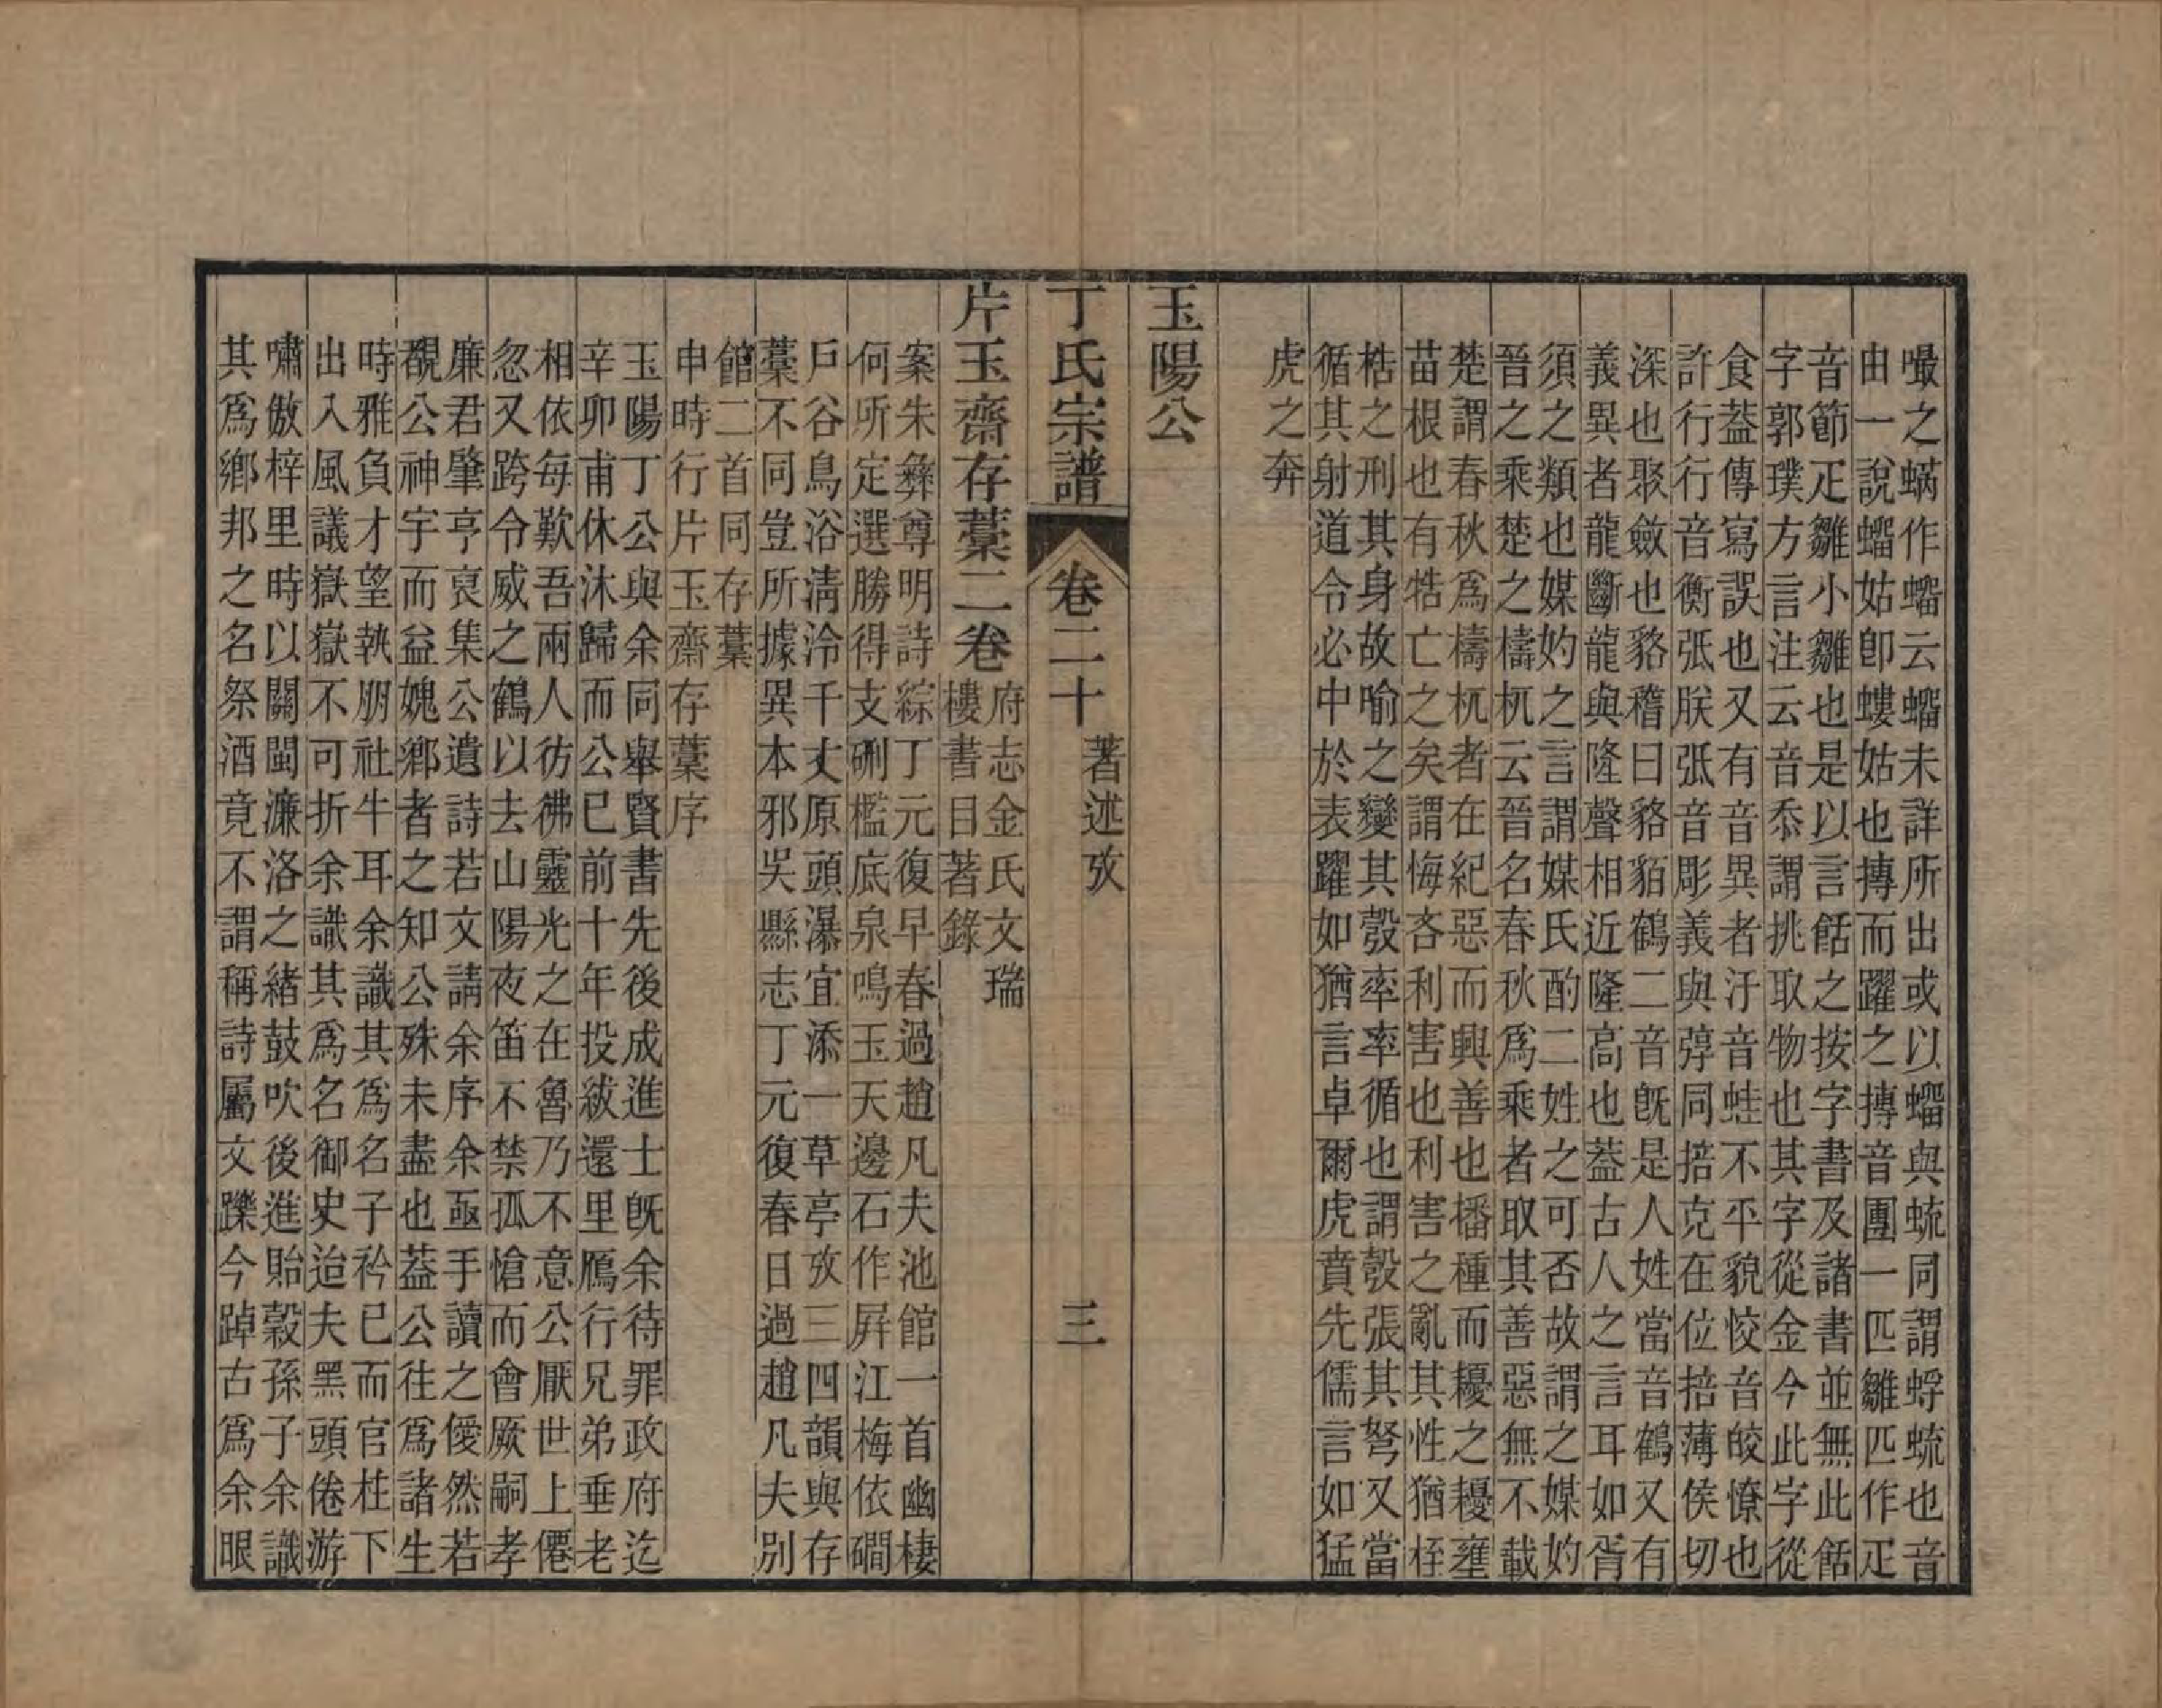 嘬之螨作蠝云蠝未詳所出或以蠝與蛖同謂蜉蛖也音
由一說蠝姑卽螻姑也摶而躍之摶音團一匹雛匹作疋
音節疋雛小雛也是以言餂之按字書及諸書並無此餂
字郭璞方言注云音忝謂挑取物也其字從金今此字從
食葢傳寫誤也又有音異者汙音蛙不平貌恔音皎憭也
許行行音衡張朕張音彫義與弴同掊克在位掊薄侯切
深也聚斂也貉稽曰貉貊鶴二音旣是人姓當音鶴又有
義異者龍斷龍與隆聲相近隆高也葢古人之言耳如胥
須之類也媒妁之言謂媒氏酌二姓之可否故謂之媒妁
晉之乘楚之檮杌云晉名春秋爲乘者取其善惡無不載
楚謂春秋爲檮杌者在紀惡而興善也播種而耰之耰壅
苗根也有牿亡之矣謂悔吝利害也利害之亂其性猶桎
梏之刑其身故喻之變其彀率率循也謂彀張其弩又當
循其射道令必中於表躍如猶言卓爾虎賁先儒言如猛
虎之奔
玉陽公
丁氏宗譜　卷二十　著述攷　三
片玉齋存藁二卷　府志金氏文瑞
樓書目著錄
案朱彝尊明詩綜丁元復早春過趙凡夫池館一首幽棲
何所定選勝得支硎檻底泉鳴玉天邊石作屛江梅依磵
戶谷鳥浴淸泠千丈原頭瀑宜添一草亭攷三四韻與存
藁不同豈所據異本邪吳縣志丁元復春日過趙凡夫別
館二首同存藁
申時行片玉齋存藁序
玉陽丁公與余同舉賢書先後成進士旣余待罪政府迄
辛卯甫休沐歸而公已前十年投紱還里鴈行兄弟垂老
相依每歎吾兩人彷彿靈光之在魯乃不意公厭世上僊
忽又跨令威之鶴以去山陽夜笛不禁孤愴而會厥嗣孝
廉君肇亨裒集公遺詩若文請余序余亟手讀之僾然若
覩公神宇而益媿鄉者之知公殊未盡也葢公往爲諸生
時雅負才望執朋社牛耳余識其爲名子衿已而官柱下
出入風議嶽嶽不可折余識其爲名御史迨夫黑頭倦游
嘯傲梓里時以關閩濂洛之緒鼓吹後進貽穀孫子余識
其爲鄉邦之名祭酒竟不謂稱詩屬文躒今踔古爲余眼